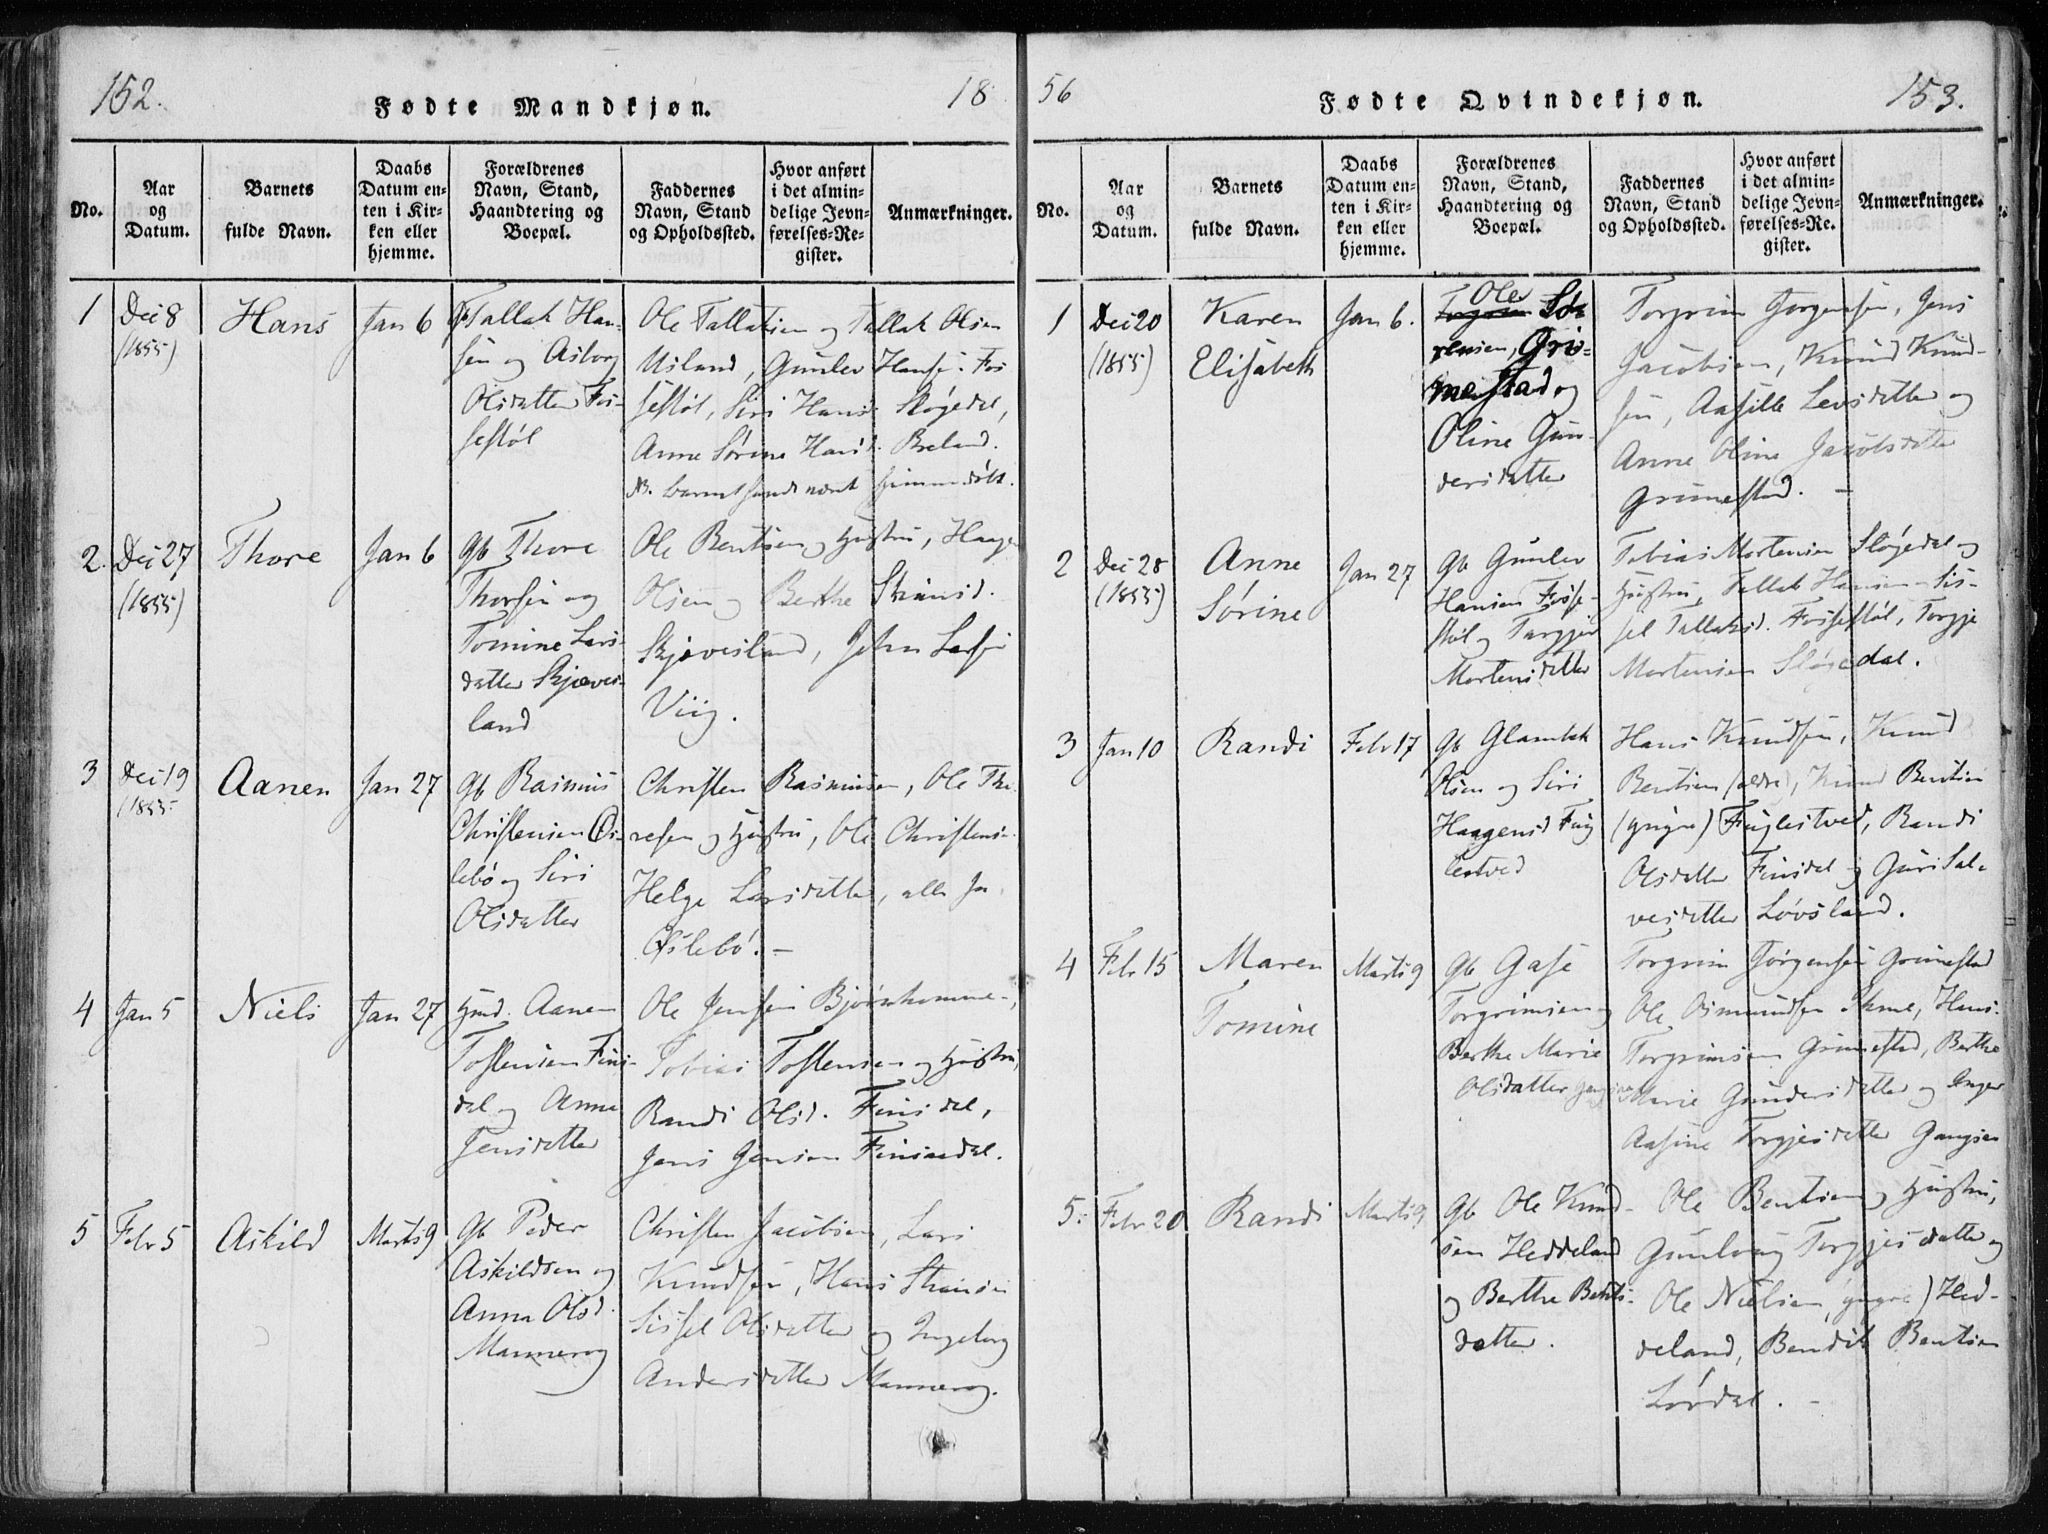 152.
18
Fødte Mandkjøn.
No.
Aar
og
Datum.
Barnets
fulde Navn.
Daabs
Datum en-
ten i Kir-
ken eller
hjemme.
Forældrenes
Navn, Stand,
Haandtering og
Boepæl.
Faddernes
Navn, Stand
og Opholdssted.
Hvor anført
i det almin-
delige Jevn-
førelses-Re-
gister.
Anmærkninger.
1
Dec 8
(1855)
Hans
Jan 6
Gb Tallak Han-
sen og Asborg
Olsdatter Fos-
sestøl
Ole Tallaksen og Tallak Olsen
Usland, Gunlev Hanse- Fos
sestøl, Siri Hansd. Sløgedal,
Anne Sørine Hansd. Breland.
NB. barnet hjemmedøbt.
2.
Dec 27
(1855)
Thore
Jan 6
Gb Thore
Thorsen og
Tomine Lars-
datter Skjæves-
land
Ole Bentsen og Hustru, Haagen
Olsen og Berthe Stiansd.
Skjævesland, John Larsen
Viig.
3
Dec 19
(1855
Aanen
Jan 27
Gb Rasmus
Christensen Os-
lebø og Siri
Olsdatter
Christen Rasmusen, Ole Tho-
resen og Hustru, Ole Christens-
Helge Larsdatter, alle fra
Øslebø. -
4
Jan 5
Niels
Jan 27
Hmd. Aanen
Tostensen Fins-
dal og Anne
Jensdatter
Ole Jensen Bjørnhomme-,
Tobias Tostensen og Hustru,
Randi Olsd. Finsdal,
Jens Jensen Finsdal.
5
Febr 5
Askild
Marts 9
Gb Peder
Askildsen og
Anna Olsd.
Mannerog
Christen Jacobsen, Lars
Knudsen, Hans Stiansen
Sissel Olsdatter og Ingeborg
Andersdatter Mannerog.
56
153.
Fødte Qvindekjøn.
No.
Aar
og
Datum.
Barnets
fulde Navn.
Daabs
Datum en-
ten i Kir-
ken eller
hjemme.
Forældrenes
Navn, Stand,
Haandtering og
Boepæl.
Faddernes
Navn, Stand
og Opholdssted.
Hvor anført
i det almin-
delige Jevn-
førelses-Re-
gister.
Anmærkninger.
1
Dec 20
(1855)
Karen
Elisabeth
Jan 6.
Ole
Torgrim Sø-
rensen, Gri-
mestad og
Oline Gun-
dersdatter
Torgrim Jørgensen, Jens
Jacobsen, Knud Knud-
sen, Aasille Levsdatter og
Anne Oline Jacobsdatter
Grimestad. -
2
Dec 28
(1855)
Anne
Sørine
Jan 27
Gb Gunlev
Hansen Fosse-
støl og Targjer
Mortensdatter
Tobias Mortensen Sløgedal og
Hustru, Tallak Hansen- Sis-
sel Tallaksd. Fossestøl, Torgje
Mortensen Sløgedal.
3
Jan 10
Randi
Febr 17
Gb Glambek
Olsen og Siri
Haagensd Fug
lestved
Hans Knudsen, Knud
Bentsen (ældre), Knud Bentsen
(yngre) Fuglestved, Randi
Olsdatter Finsdal og Guri Sal-
vesdatter Løvsland.
4
Febr 15
Maren
Tomine
Marts 9
Gb Gase
Torgrimsen og
Berthe Marie
Olsdatter
Torgrim Jørgensen Grimestad
Ole Osmundsen, Hans
Torgrimsen Grimestad, Berthe
Marie Gundersdatter og Inger
Aasine Torgjesdatter Gangsen
5.
Febr 20
Randi
Marts 9
Gb Ole Knud-
sen Heddeland
og Berthe Bents-
datter.
Ole Bentsen og Hustru,
Gunlaug Torgjesdatter og
Ole Nielsen (yngre) Hed-
deland, Bendik Bentsen
Lørdal. -